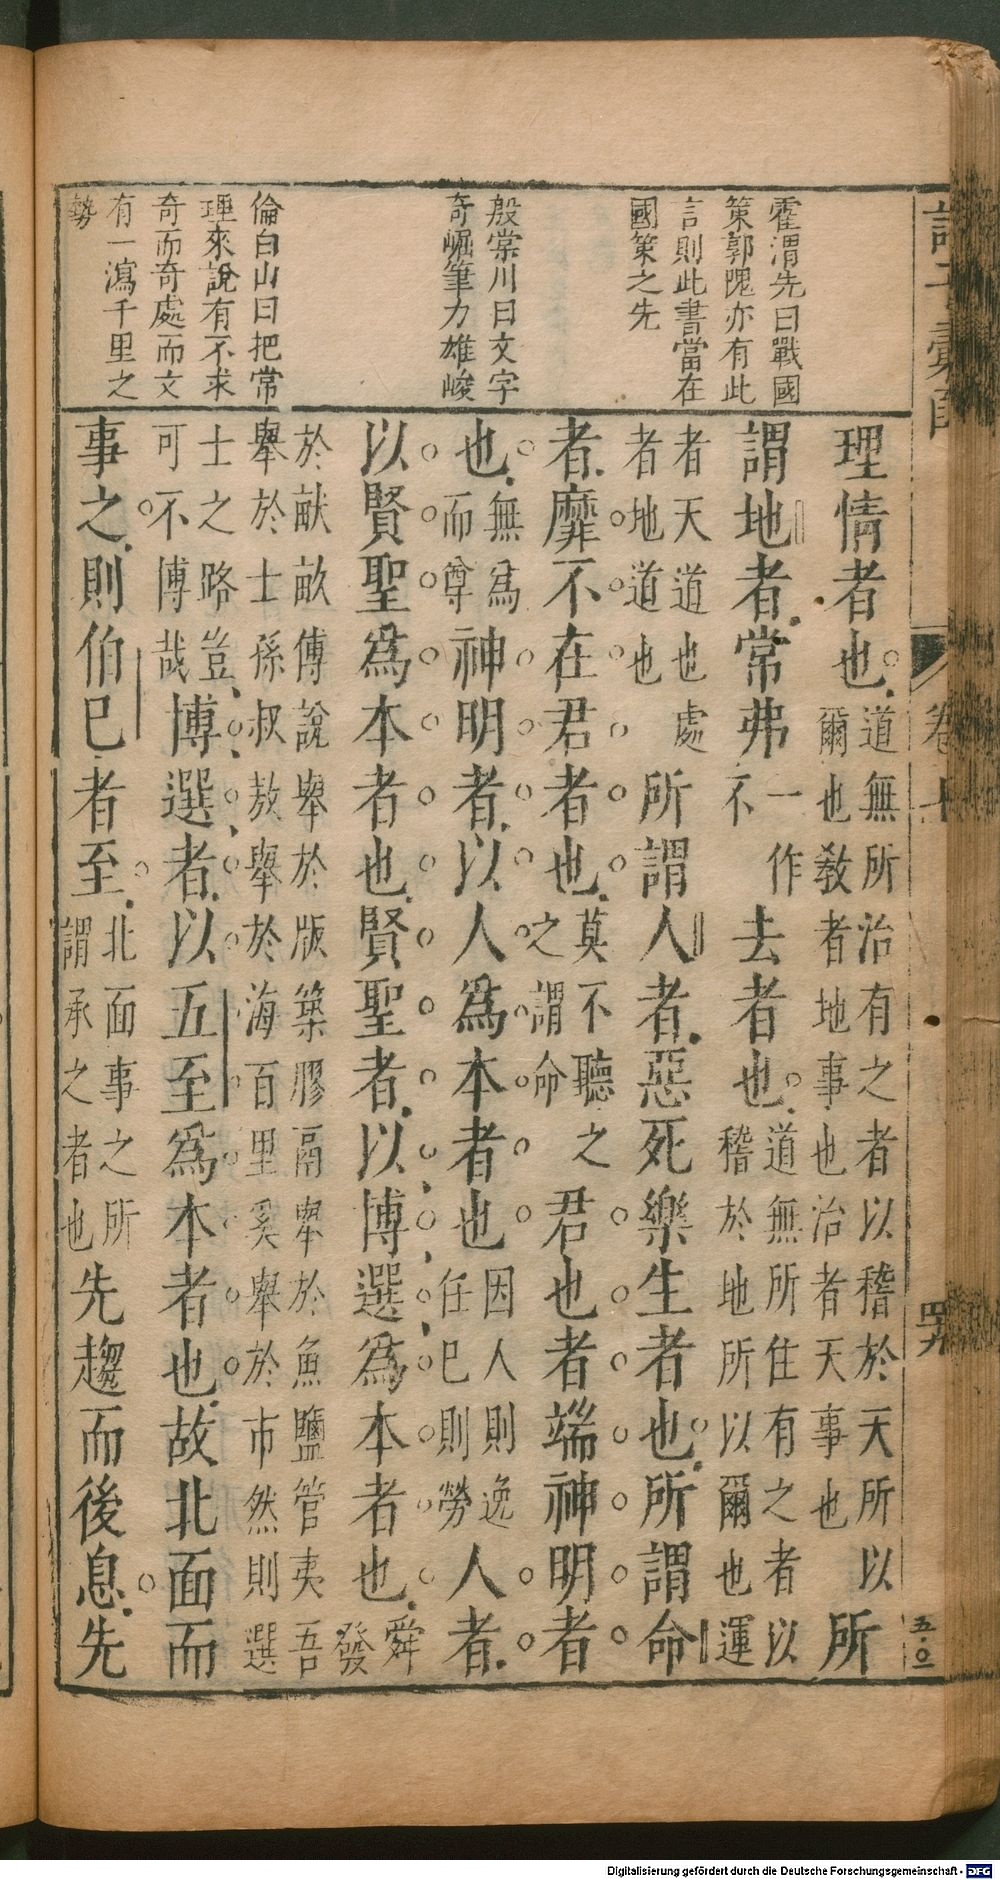 霍渭先曰戰國
策郭隗亦有此
言則此書當在
國策之先
殷棠川曰文字
奇崛筆力雄峻
倫白山曰把常
理來說有不求
奇而奇處而文
有一瀉千里之
勢
理情者也道無所治有之者以稽於天所以爾也教者地事也治者天事也所
謂地者常弗一作不去者也道無所住有之者以稽於地所以爾也運
者天道也處者地道也所謂人者惡死樂生者也所謂命
者靡不在君者也莫不聽之之謂命君也者端神明者
也無為而尊神明者以人為本者也因人則逸任已則勞人者
以賢聖為本者也賢聖者以博選為本者也舜發
於献畝傅說舉於版築膠鬲舉於魚鹽管夷吾
舉於士孫叔敖舉於海百里奚舉於市然則選
士之路豈可不博哉博選者以五至為本者也故北面而
事之則伯已者至北面事之所謂承之者也先趨而後息先
卷十
四九
五〇
Digitalisierung gefördert durch die Deutsche Forschungsgemeinschaft - DFG